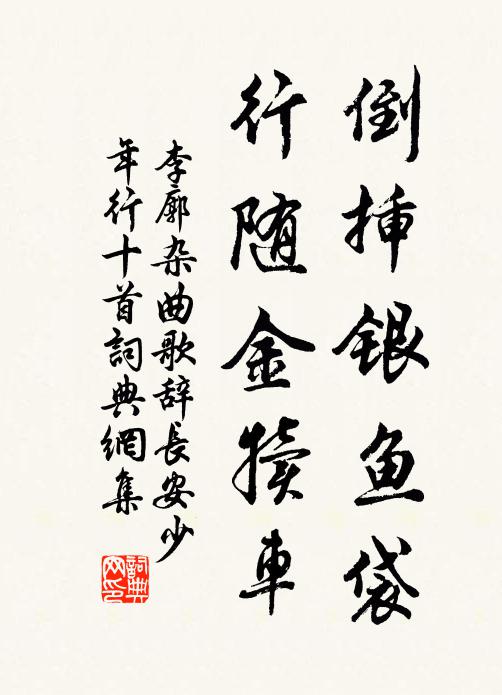 倒挿银鱼袋
行随金犊車
李廓杂曲歌辞長安少
年行十首詞典網集
詞典网印